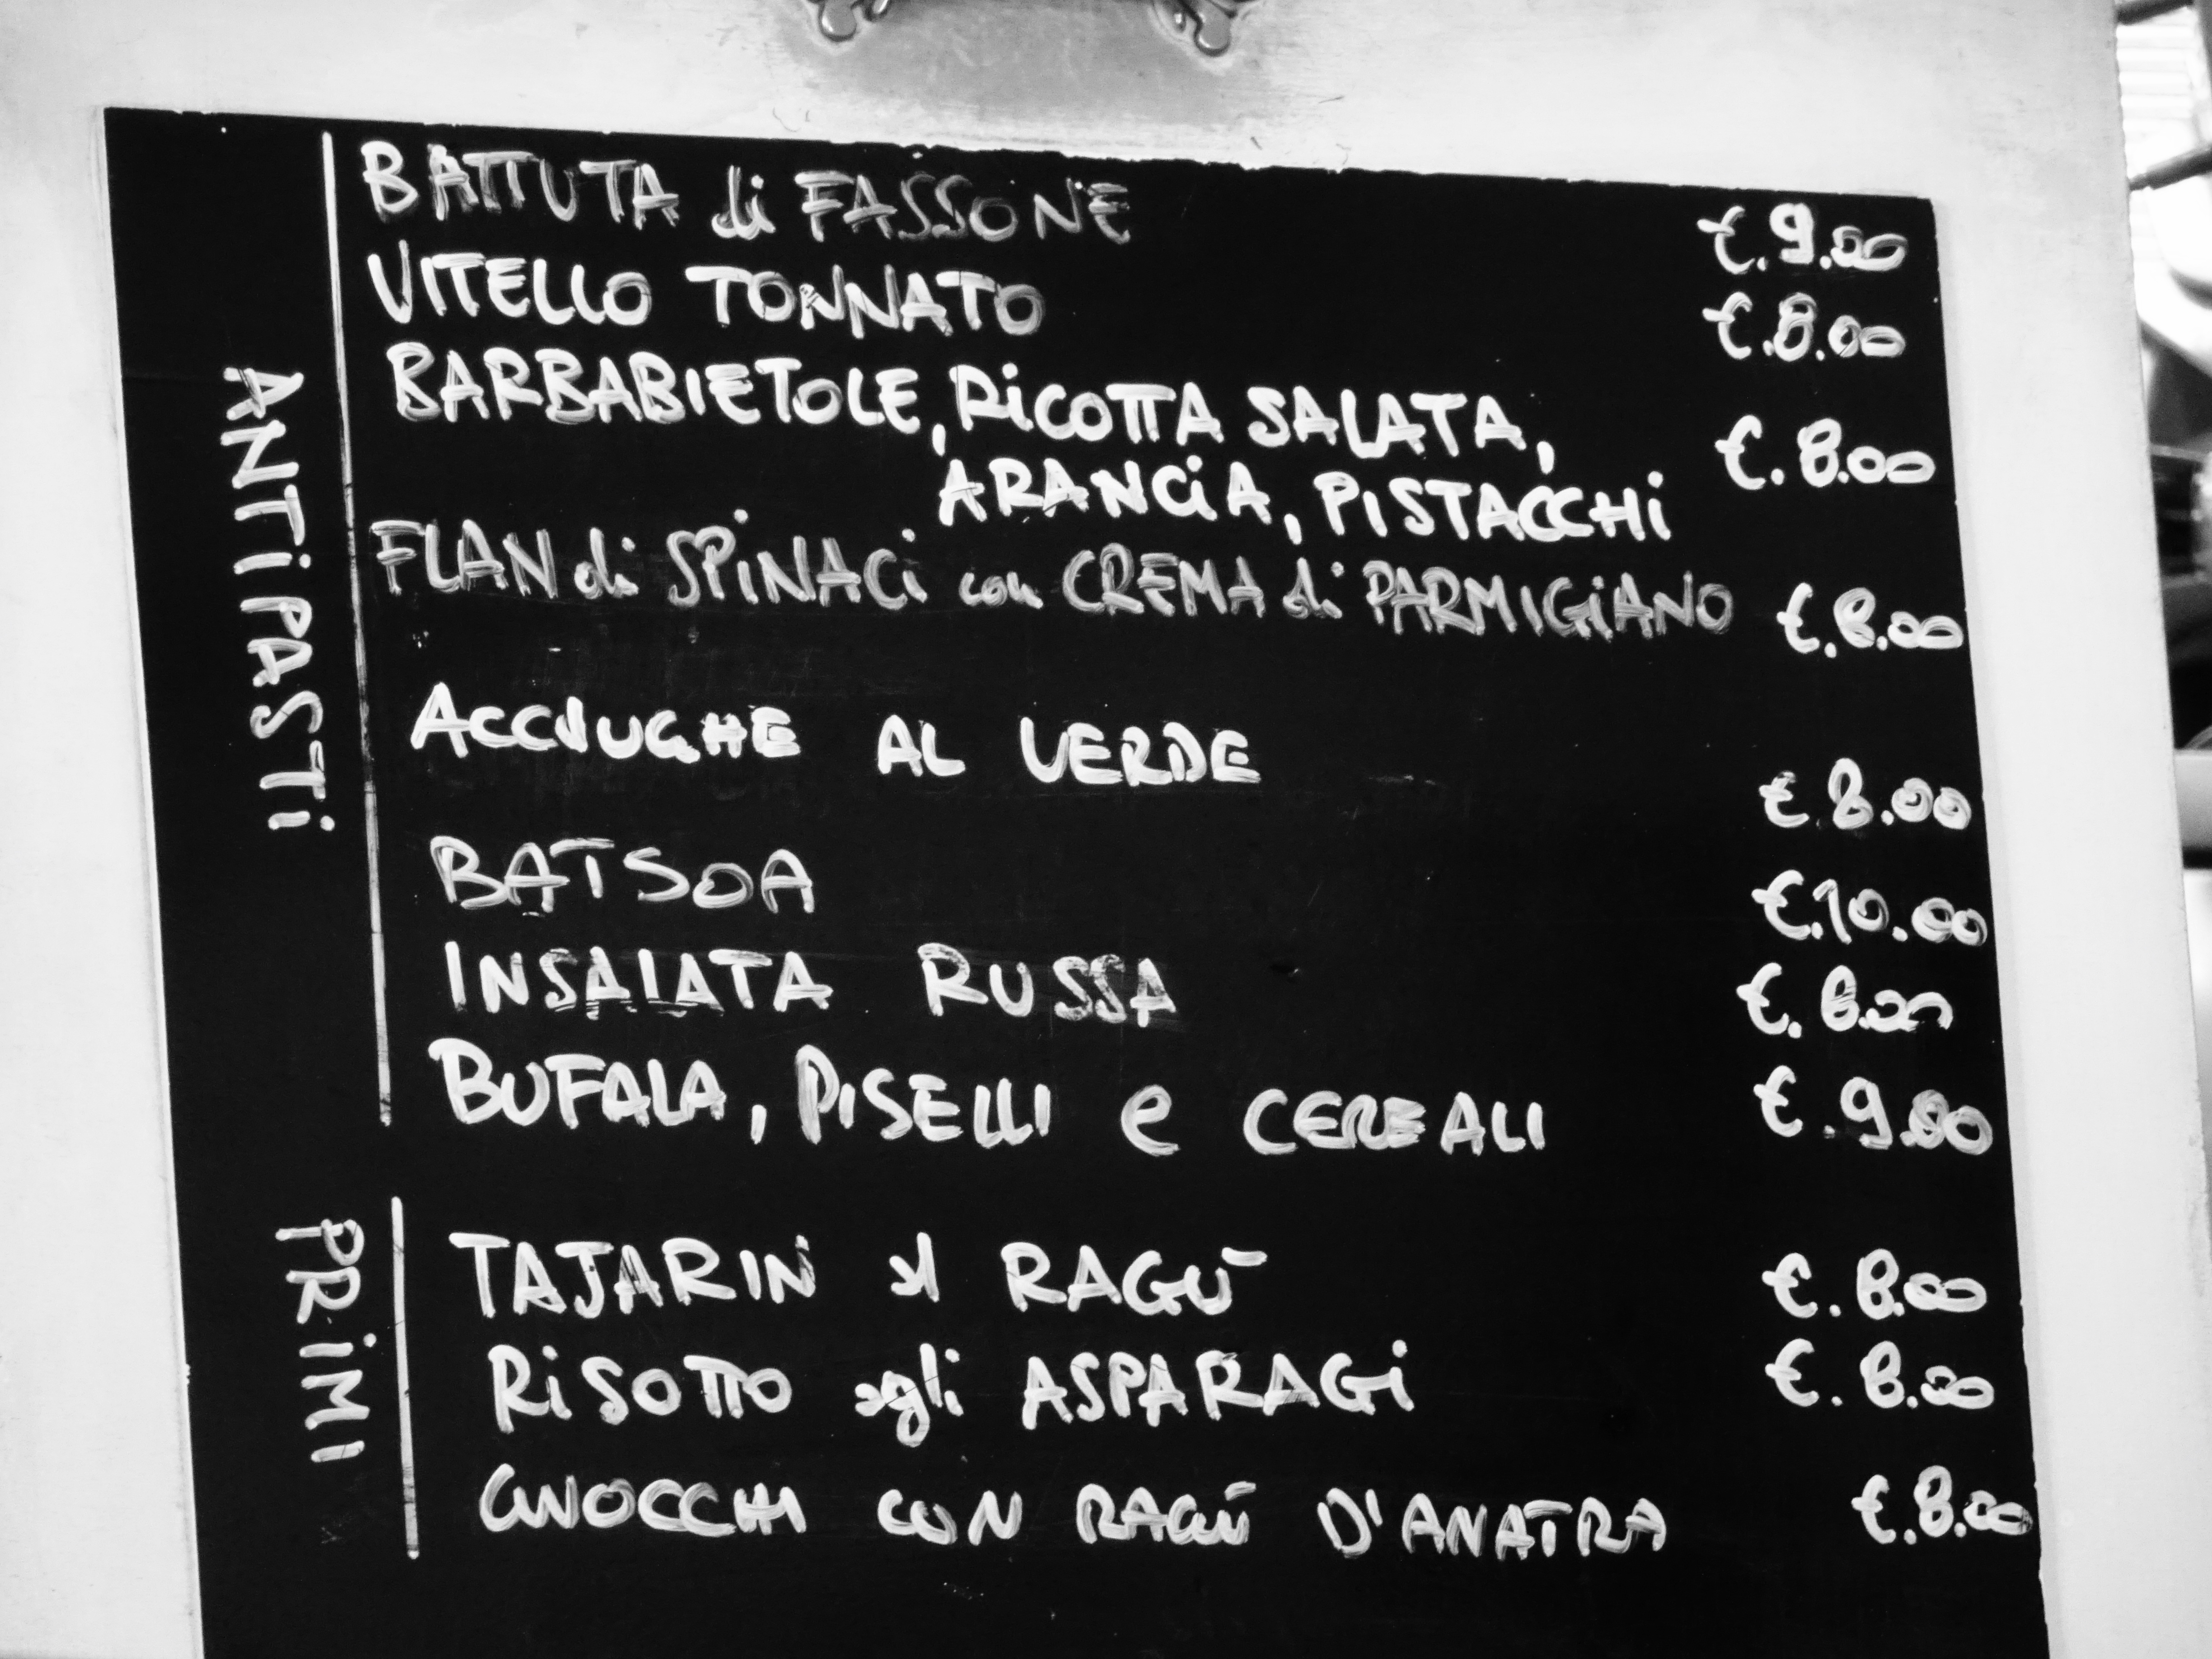 ANTiPASTi
BATTUTA di FASSONE €.9.00
VITELLO TONNATO €.8.00
BARBABIETOLE, RiCOTTA SALATA, €.8.00
ARANCiA, PiSTACCHi
FLAN di SPiNACi con CREMA di PARMIGiANO €.8.00
ACCIUGHE AL VERDE €8.00
BATSOA €.10.00
INSALATA RUSSA €.8.00
BUFALA, PISELLI e CEREALI €.9.00
PRiMI
TAJARIN al RAGÙ €.8.00
RiSOTTO agli ASPARAGi €.8.00
GNOCCHI CON RAGÙ D'ANATRA €.8.00